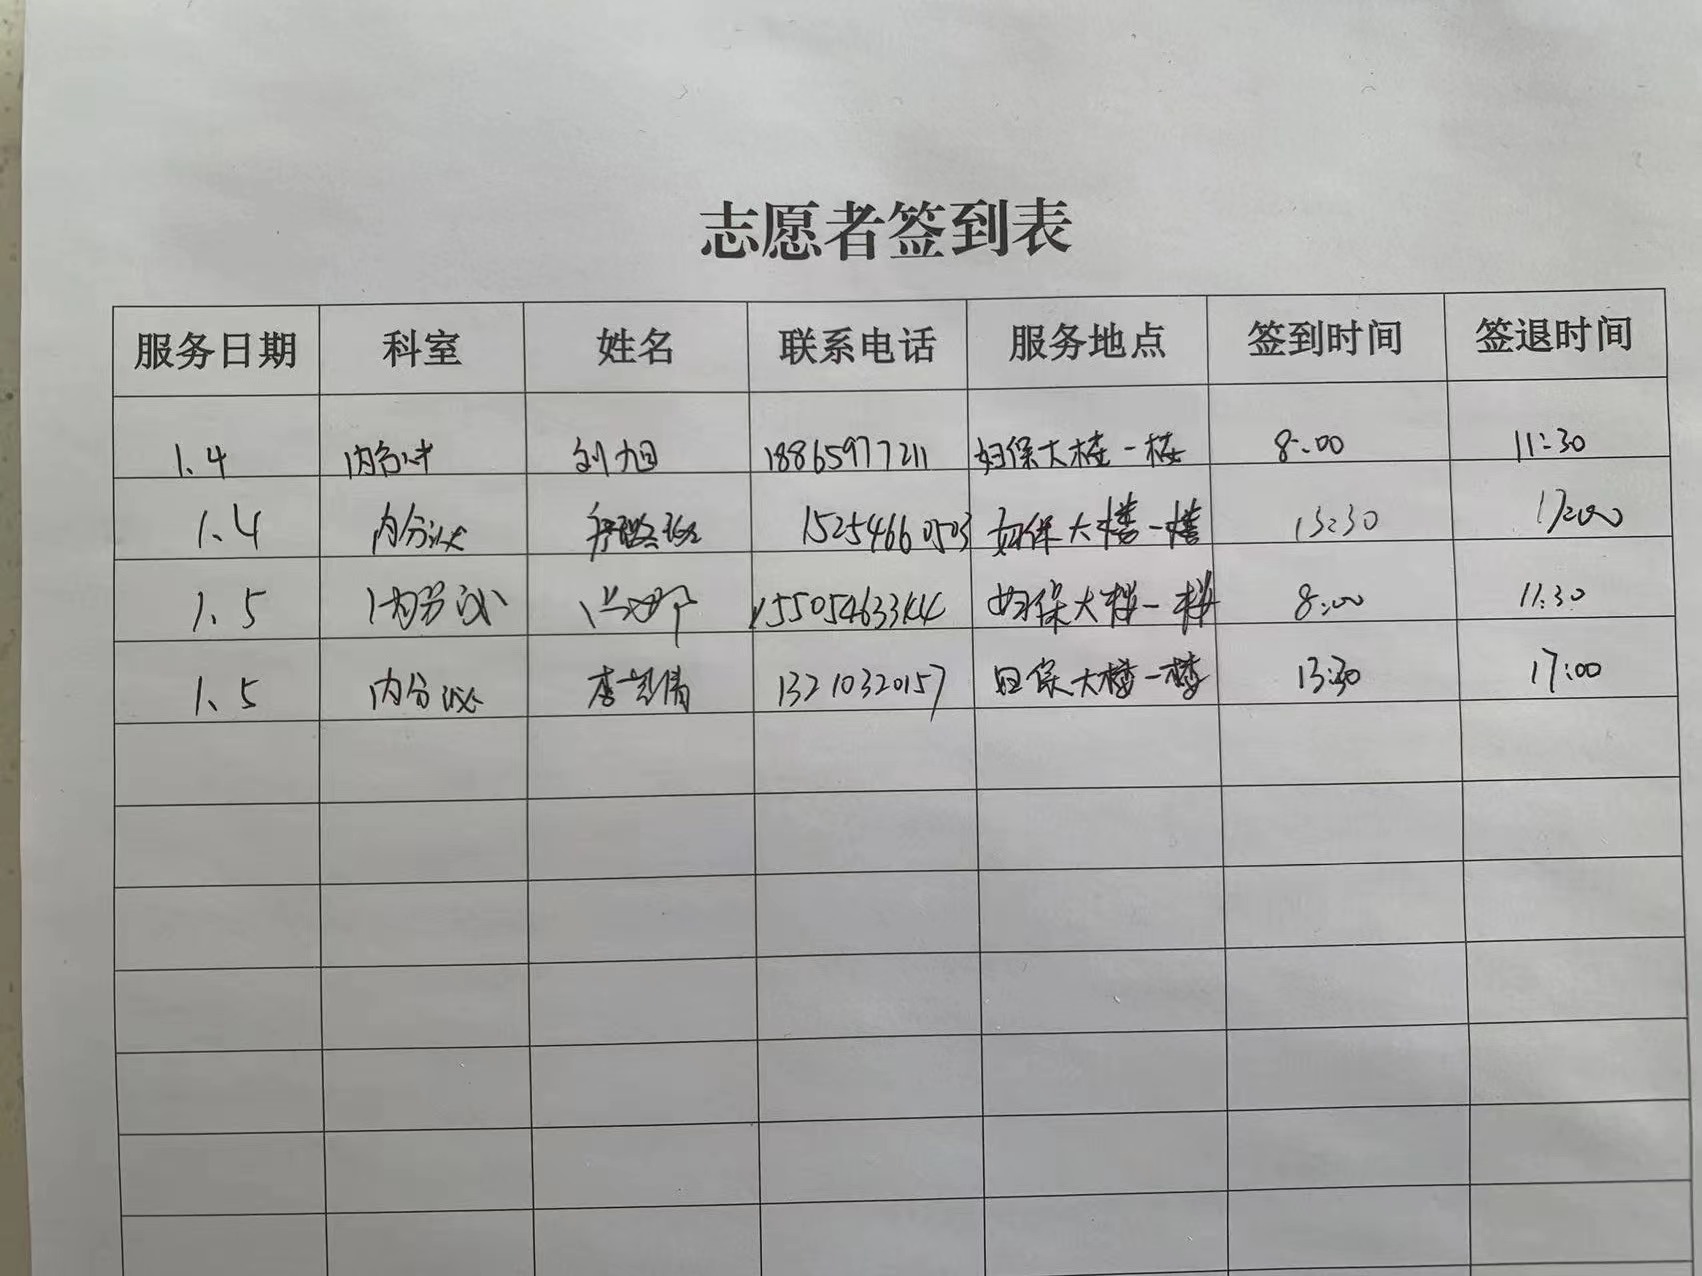 志愿者签到表
服务日期 科室 姓名 联系电话 服务地点 签到时间 签退时间
1.4 内分泌 刘旭 18865977211 妇保大楼一楼 8:00 11:30
1.4 内分泌 15254660503 妇保大楼一楼 13:30 17:00
1.5 内分泌 妇保大楼一楼 8:00 11:30
1.5 内分泌 13210320157 妇保大楼一楼 13:30 17:00